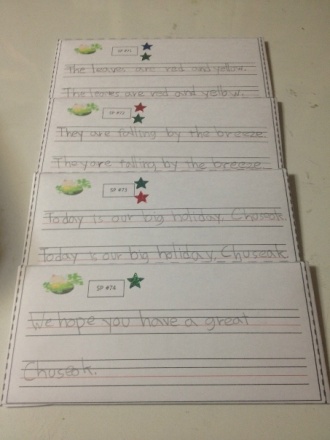 SP #71
The leaves are red and yellow.
The leaves are red and yellow.
SP #72
They are falling by the breeze.
They are falling by the breeze.
SP #73
Today is our big holiday, Chuseok.
Today is our big holiday, Chuseok.
SP #74
We hope you have a great
Chuseok.